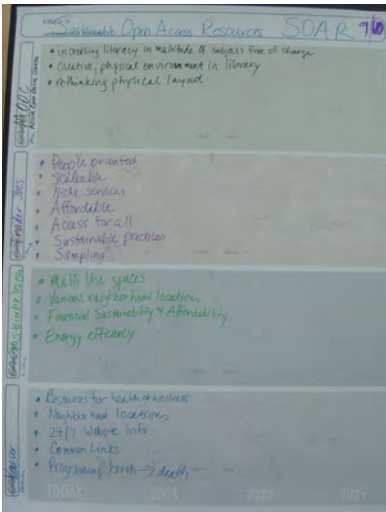 Sustainable Open Access Resources SOAR
MOOC
• increasing literacy in multitude of subjects free of charge
• Creative, physical environment in library
• rethinking physical layout
Trader Joes
• People oriented
• Scaleable
• Niche services
• Affordable
• Access for all
• Sustainable practices
• Sampling
• Multi Use spaces
• Various neighborhood locations
• Financial Sustainability & Affordability
• Energy efficiency
Kaiser
• Resources for health & wellness
• Neighborhood locations
• 24/7 Website Info
• Common Links
• Programing birth → death
TODAY 2020 2025